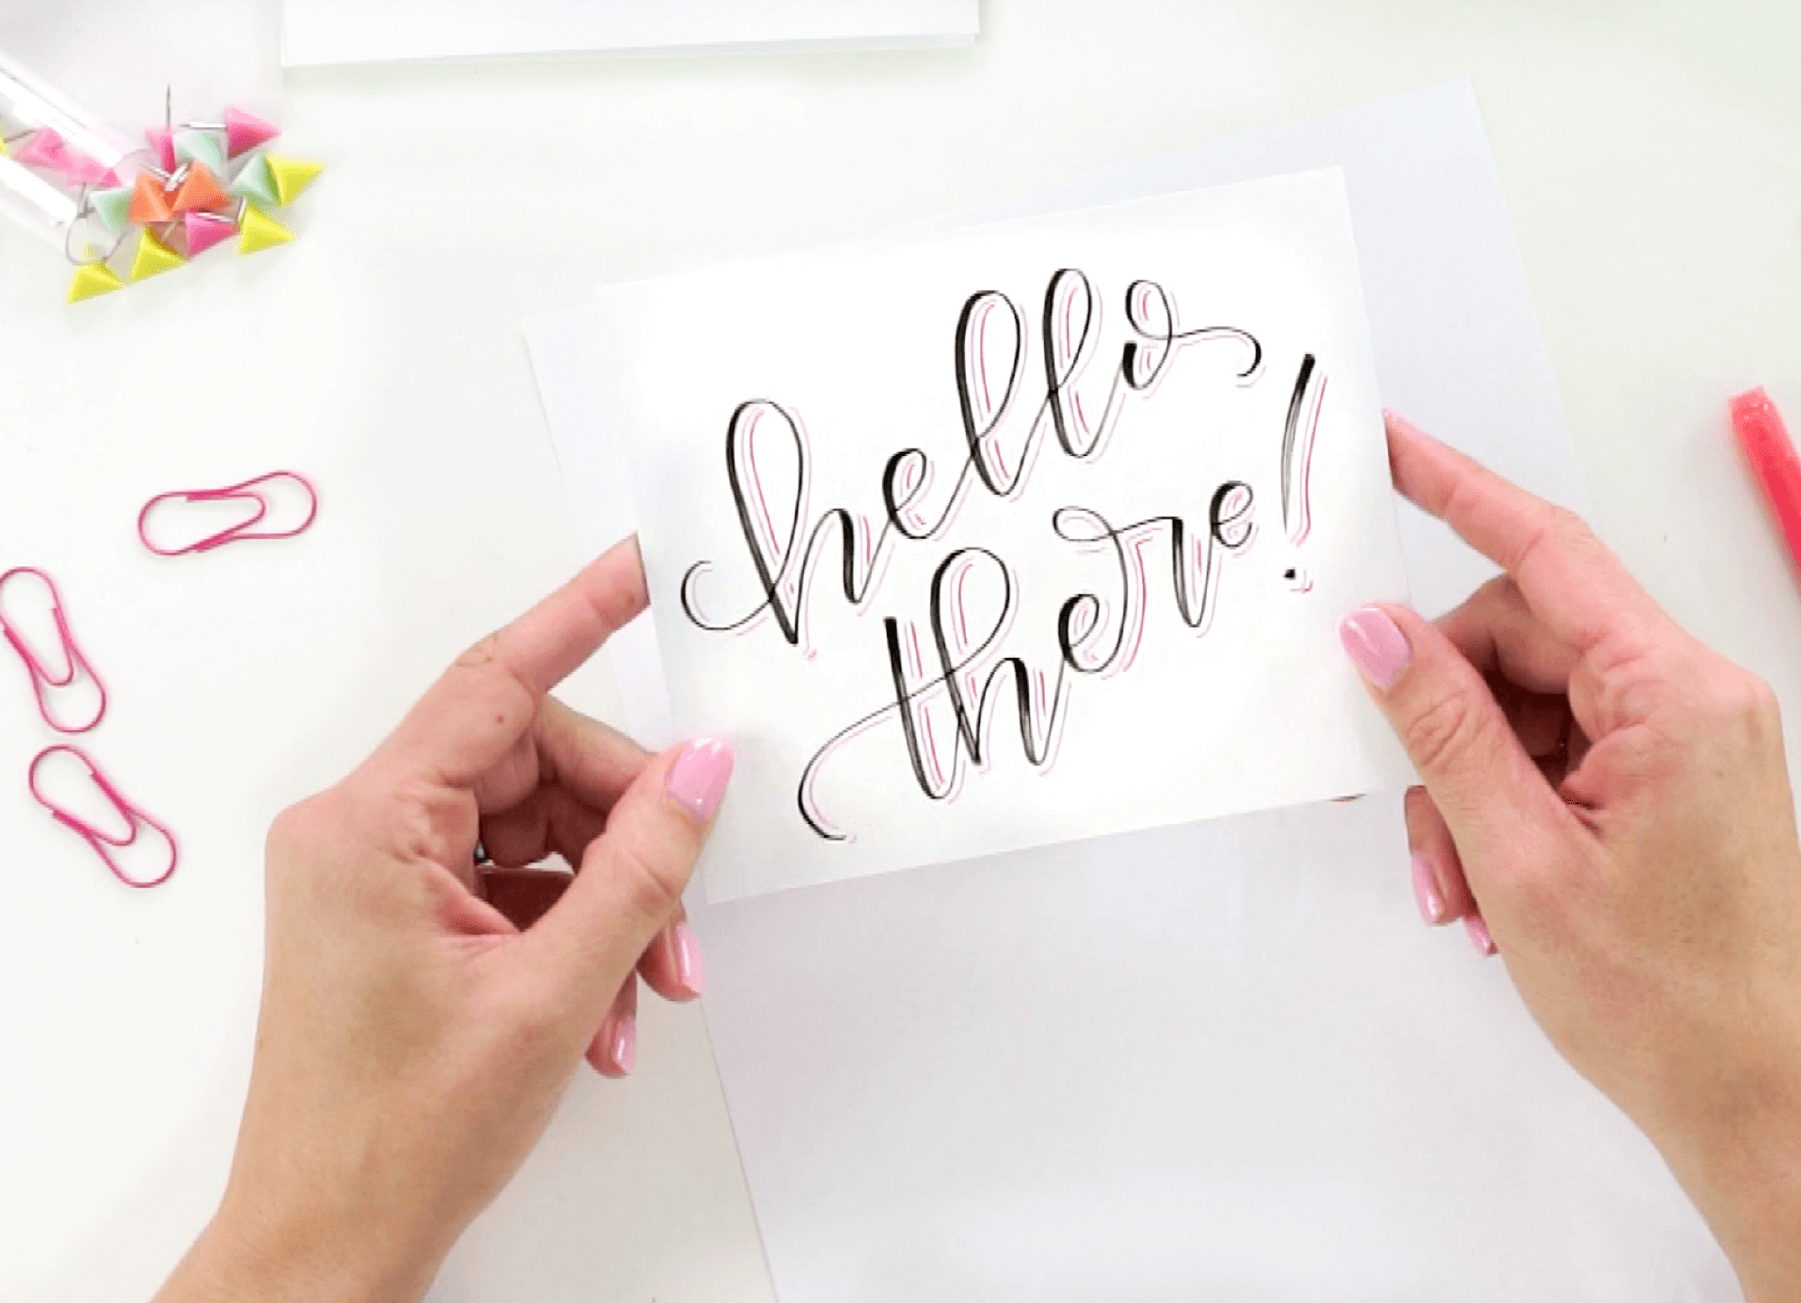 hello
there!